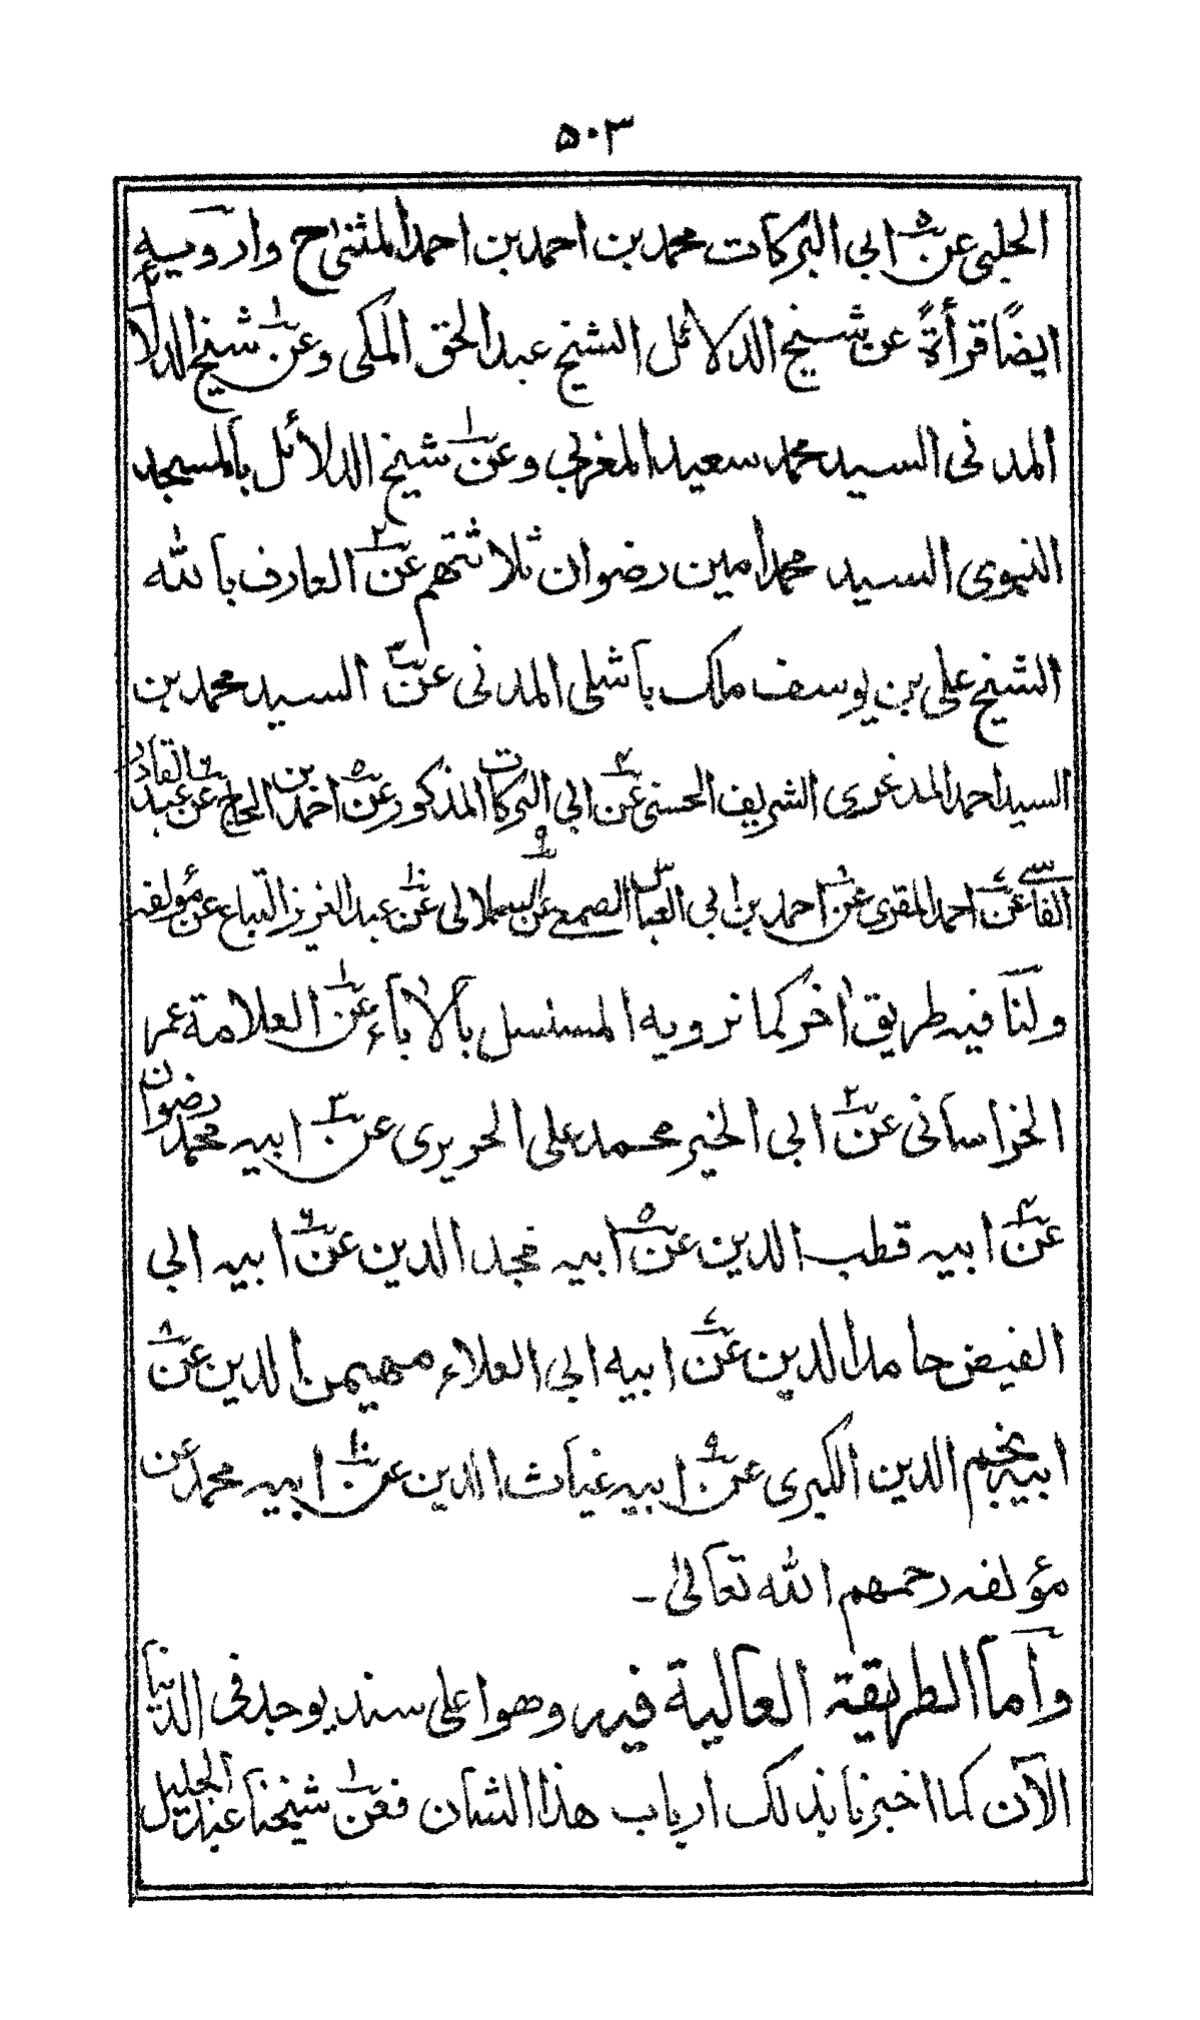 ۵۰۳
الجلبی عن۵ ابی البرکات محمد بن احمد بن احمد المثنیٰ ح وارویه
ایضًا قرأةً عن شیخ الدلائل الشیخ عبد الحق المکی وعن۱ شیخ الدلائل
المدنی السید محمد سعید المغربی وعن۱ شیخ الدلائل بالمسجد
النبوی السید محمد امین رضوان ثلاثتهم عن۲ العارف بالله
الشیخ علی بن یوسف ملک باشلی المدنی عن۳ السید محمد بن
السید احمد المدغری الشریف الحسنی عن۴ ابی البرکات المذکور عن۵ احمد بن الحاج عن۶ عبد القادر
الفاسی عن۷ احمد المقری عن۸ احمد بن ابی العباس الصمعی عن۹ السملالی عن۱۰ عبد العزیز التباع عن مؤلفه
ولنا فیه طریق اٰخر کما نرویه المسلسل بالاٰباء عن۱ العلامة عمر
الخراسانی عن۲ ابی الخیر محمد علی الحریری عن۳ ابیه محمد رضوان
عن۴ ابیه قطب الدین عن۵ ابیه مجد الدین عن۶ ابیه ابی
الفیض حامد الدین عن۷ ابیه ابی العلاء مهیمن الدین عن۸
ابیه نجم الدین الکبری عن۹ ابیه غیاث الدین عن۱۰ ابیه محمد عن
مؤلفه رحمهم الله تعالیٰ۔
واما الطریقة العالیة فیه وهو اعلی سند یوجد فی الدنیا
الآن کما اخبرنا بذلک ارباب هذا الشان فعن۱ شیخنا عبد الجلیل